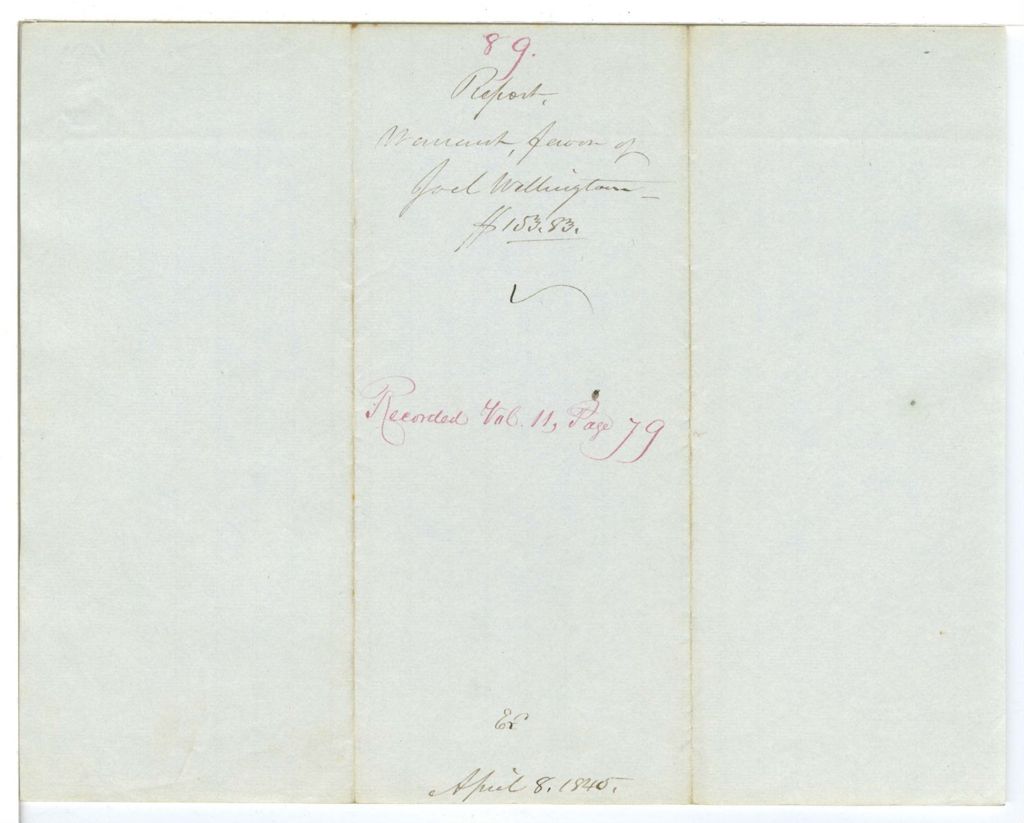 89.
Report,
Warrant, favor of
Joel Wellington
$153.83.
Recorded Vol. 11, Page 79
Ex
April 8. 1845.